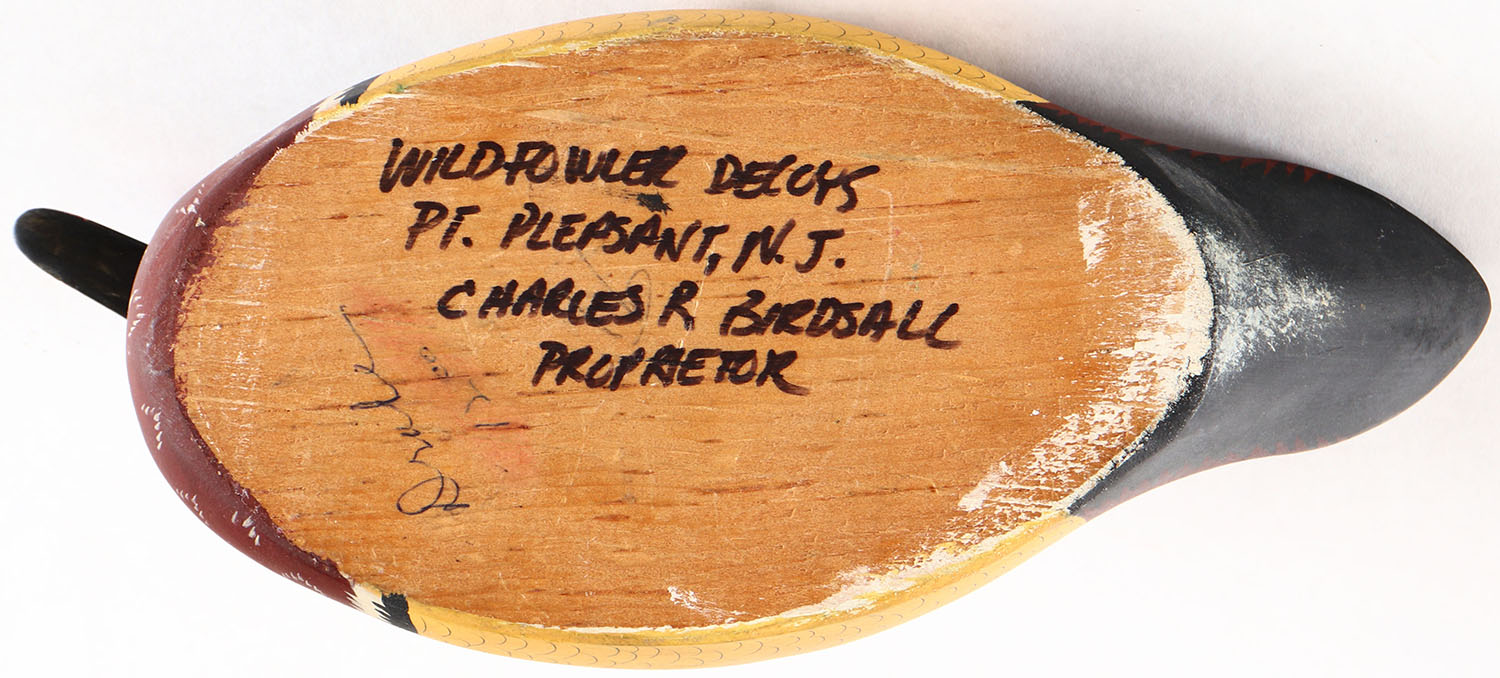 WILDFOWLER DECOYS
PT. PLEASANT, N.J.
CHARLES R BIRDSALL
PROPRIETOR